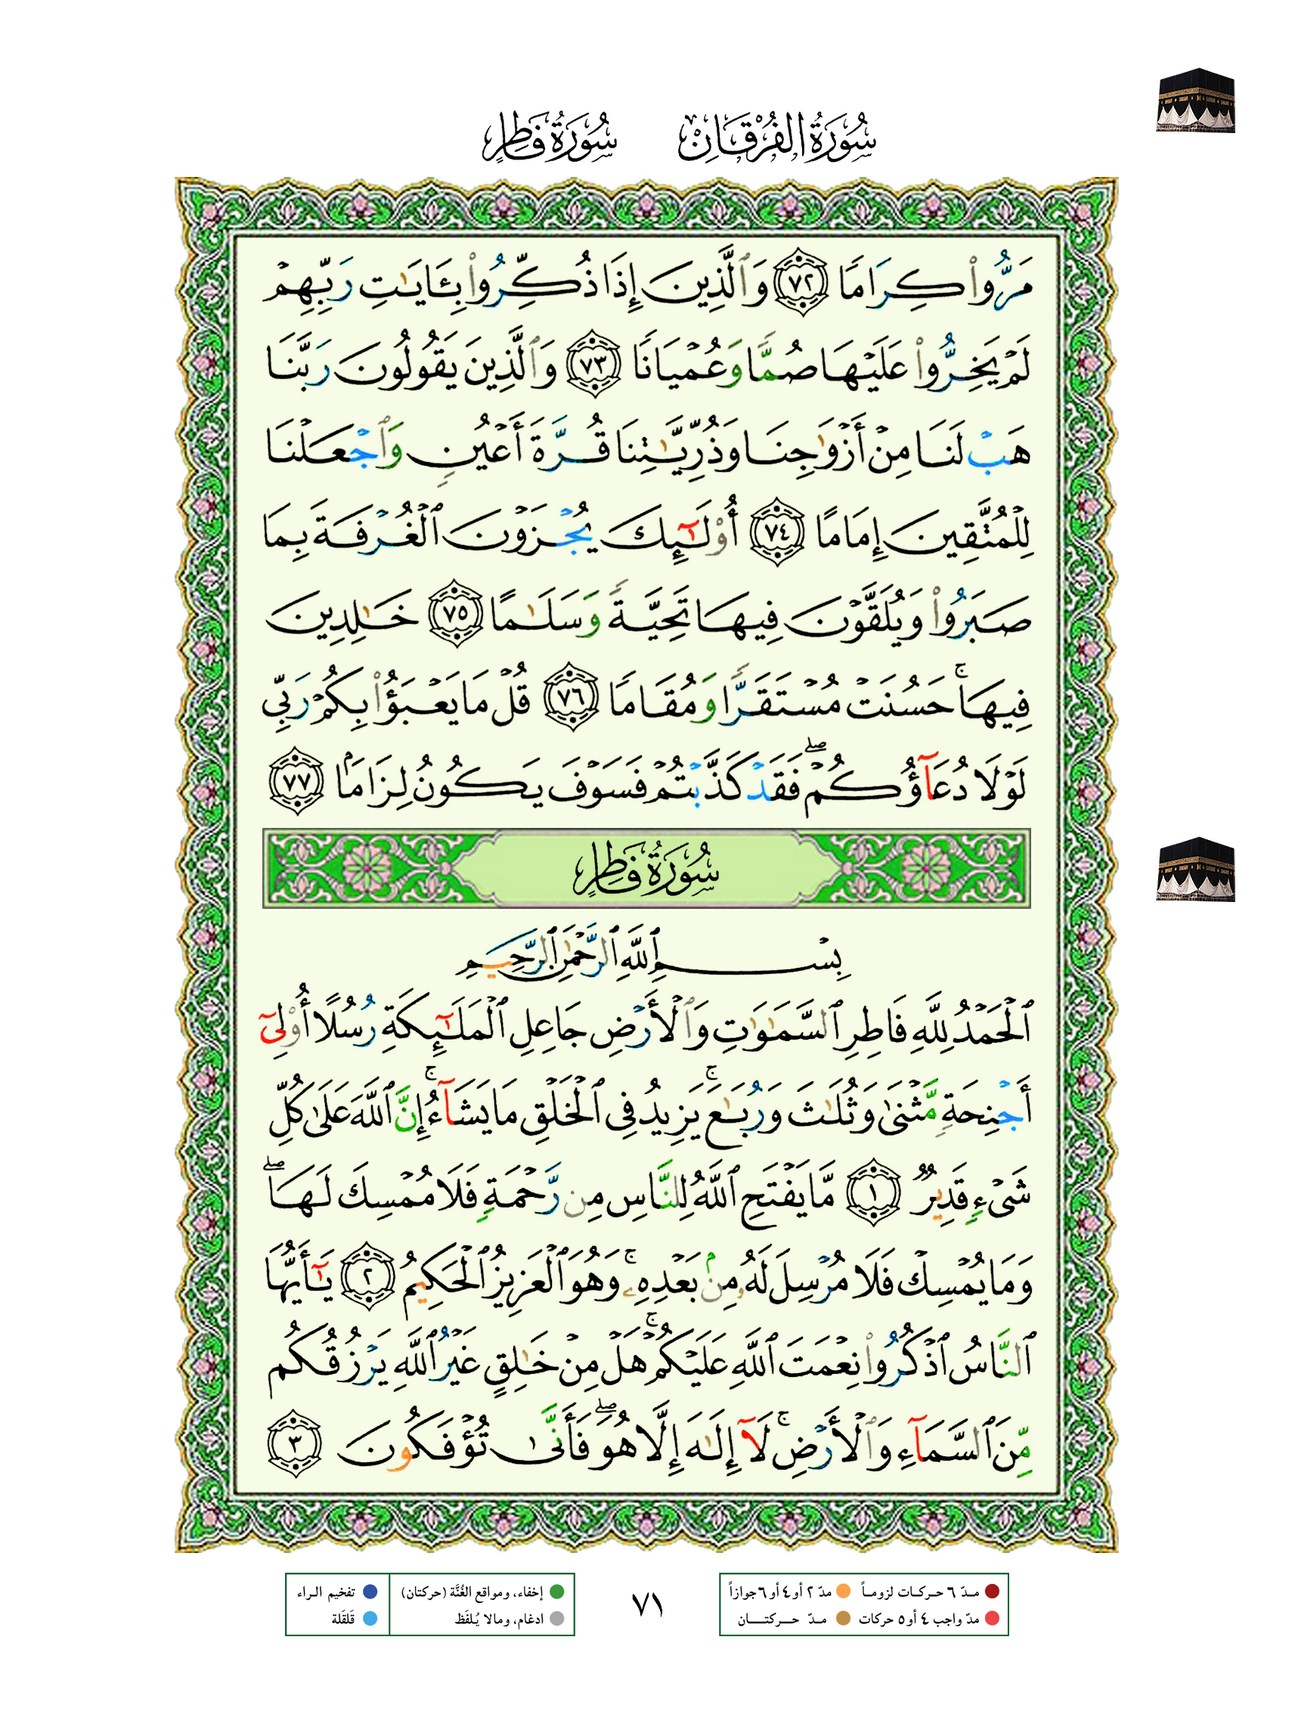 سُورَةُ الفُرْقَانِ سُورَةُ فَاطِرٍ
مَرُّوا۟ كِرَامًا ٧٢ وَٱلَّذِينَ إِذَا ذُكِّرُوا۟ بِـَٔايَٰتِ رَبِّهِمْ
لَمْ يَخِرُّوا۟ عَلَيْهَا صُمًّا وَعُمْيَانًا ٧٣ وَٱلَّذِينَ يَقُولُونَ رَبَّنَا
هَبْ لَنَا مِنْ أَزْوَٰجِنَا وَذُرِّيَّٰتِنَا قُرَّةَ أَعْيُنٍ وَٱجْعَلْنَا
لِلْمُتَّقِينَ إِمَامًا ٧٤ أُو۟لَٰٓئِكَ يُجْزَوْنَ ٱلْغُرْفَةَ بِمَا
صَبَرُوا۟ وَيُلَقَّوْنَ فِيهَا تَحِيَّةً وَسَلَٰمًا ٧٥ خَٰلِدِينَ
فِيهَا ۚ حَسُنَتْ مُسْتَقَرًّا وَمُقَامًا ٧٦ قُلْ مَا يَعْبَؤُا۟ بِكُمْ رَبِّى
لَوْلَا دُعَآؤُكُمْ ۖ فَقَدْ كَذَّبْتُمْ فَسَوْفَ يَكُونُ لِزَامًۢا ٧٧
سُورَةُ فَاطِرٍ
بِسْمِ ٱللَّهِ ٱلرَّحْمَٰنِ ٱلرَّحِيمِ
ٱلْحَمْدُ لِلَّهِ فَاطِرِ ٱلسَّمَٰوَٰتِ وَٱلْأَرْضِ جَاعِلِ ٱلْمَلَٰٓئِكَةِ رُسُلًا أُو۟لِىٓ
أَجْنِحَةٍ مَّثْنَىٰ وَثُلَٰثَ وَرُبَٰعَ ۚ يَزِيدُ فِى ٱلْخَلْقِ مَا يَشَآءُ ۚ إِنَّ ٱللَّهَ عَلَىٰ كُلِّ
شَىْءٍ قَدِيرٌ ١ مَّا يَفْتَحِ ٱللَّهُ لِلنَّاسِ مِن رَّحْمَةٍ فَلَا مُمْسِكَ لَهَا ۖ
وَمَا يُمْسِكْ فَلَا مُرْسِلَ لَهُۥ مِنۢ بَعْدِهِۦ ۚ وَهُوَ ٱلْعَزِيزُ ٱلْحَكِيمُ ٢ يَٰٓأَيُّهَا
ٱلنَّاسُ ٱذْكُرُوا۟ نِعْمَتَ ٱللَّهِ عَلَيْكُمْ ۚ هَلْ مِنْ خَٰلِقٍ غَيْرُ ٱللَّهِ يَرْزُقُكُم
مِّنَ ٱلسَّمَآءِ وَٱلْأَرْضِ ۚ لَآ إِلَٰهَ إِلَّا هُوَ ۖ فَأَنَّىٰ تُؤْفَكُونَ ٣
مدّ ٦ حركات لزوماً مدّ ٢ أو ٤ أو ٦ جوازاً
مدّ واجب ٤ أو ٥ حركات مدّ حركتان
٧١
إخفاء، ومواقع الغُنَّة (حركتان) تفخيم الراء
ادغام، ومالا يُلفَظ قلقلة